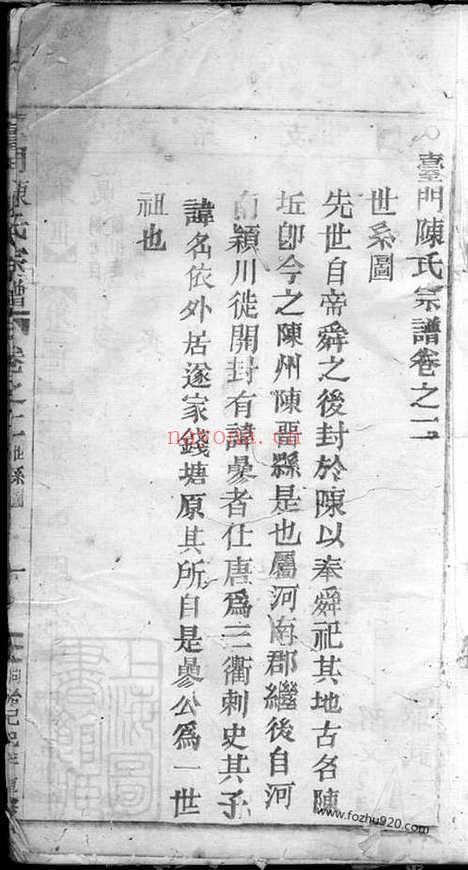 臺門陳氏宗譜卷之二
世系圖
先世自帝舜之後封於陳以奉舜祀其地古名陳
坵卽今之陳州陳畱縣是也屬河南郡繼後自河
南潁川徙開封有諱曑者仕唐爲三衢刺史其子
諱名依外居遂家錢塘原其所自是曑公爲一世
祖也
門陳氏宗譜
卷之二
世系圖
一
上海圖書館
nayona.cn
www.fozhu920.com